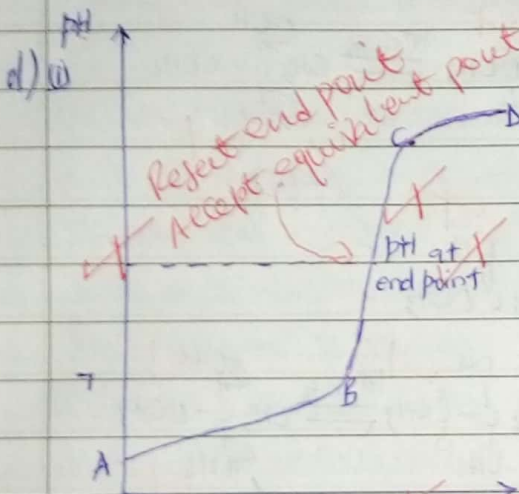 pH
d) (i)
Reject end point
Accept equivalent point
D
C
pH at
end point
7
B
A